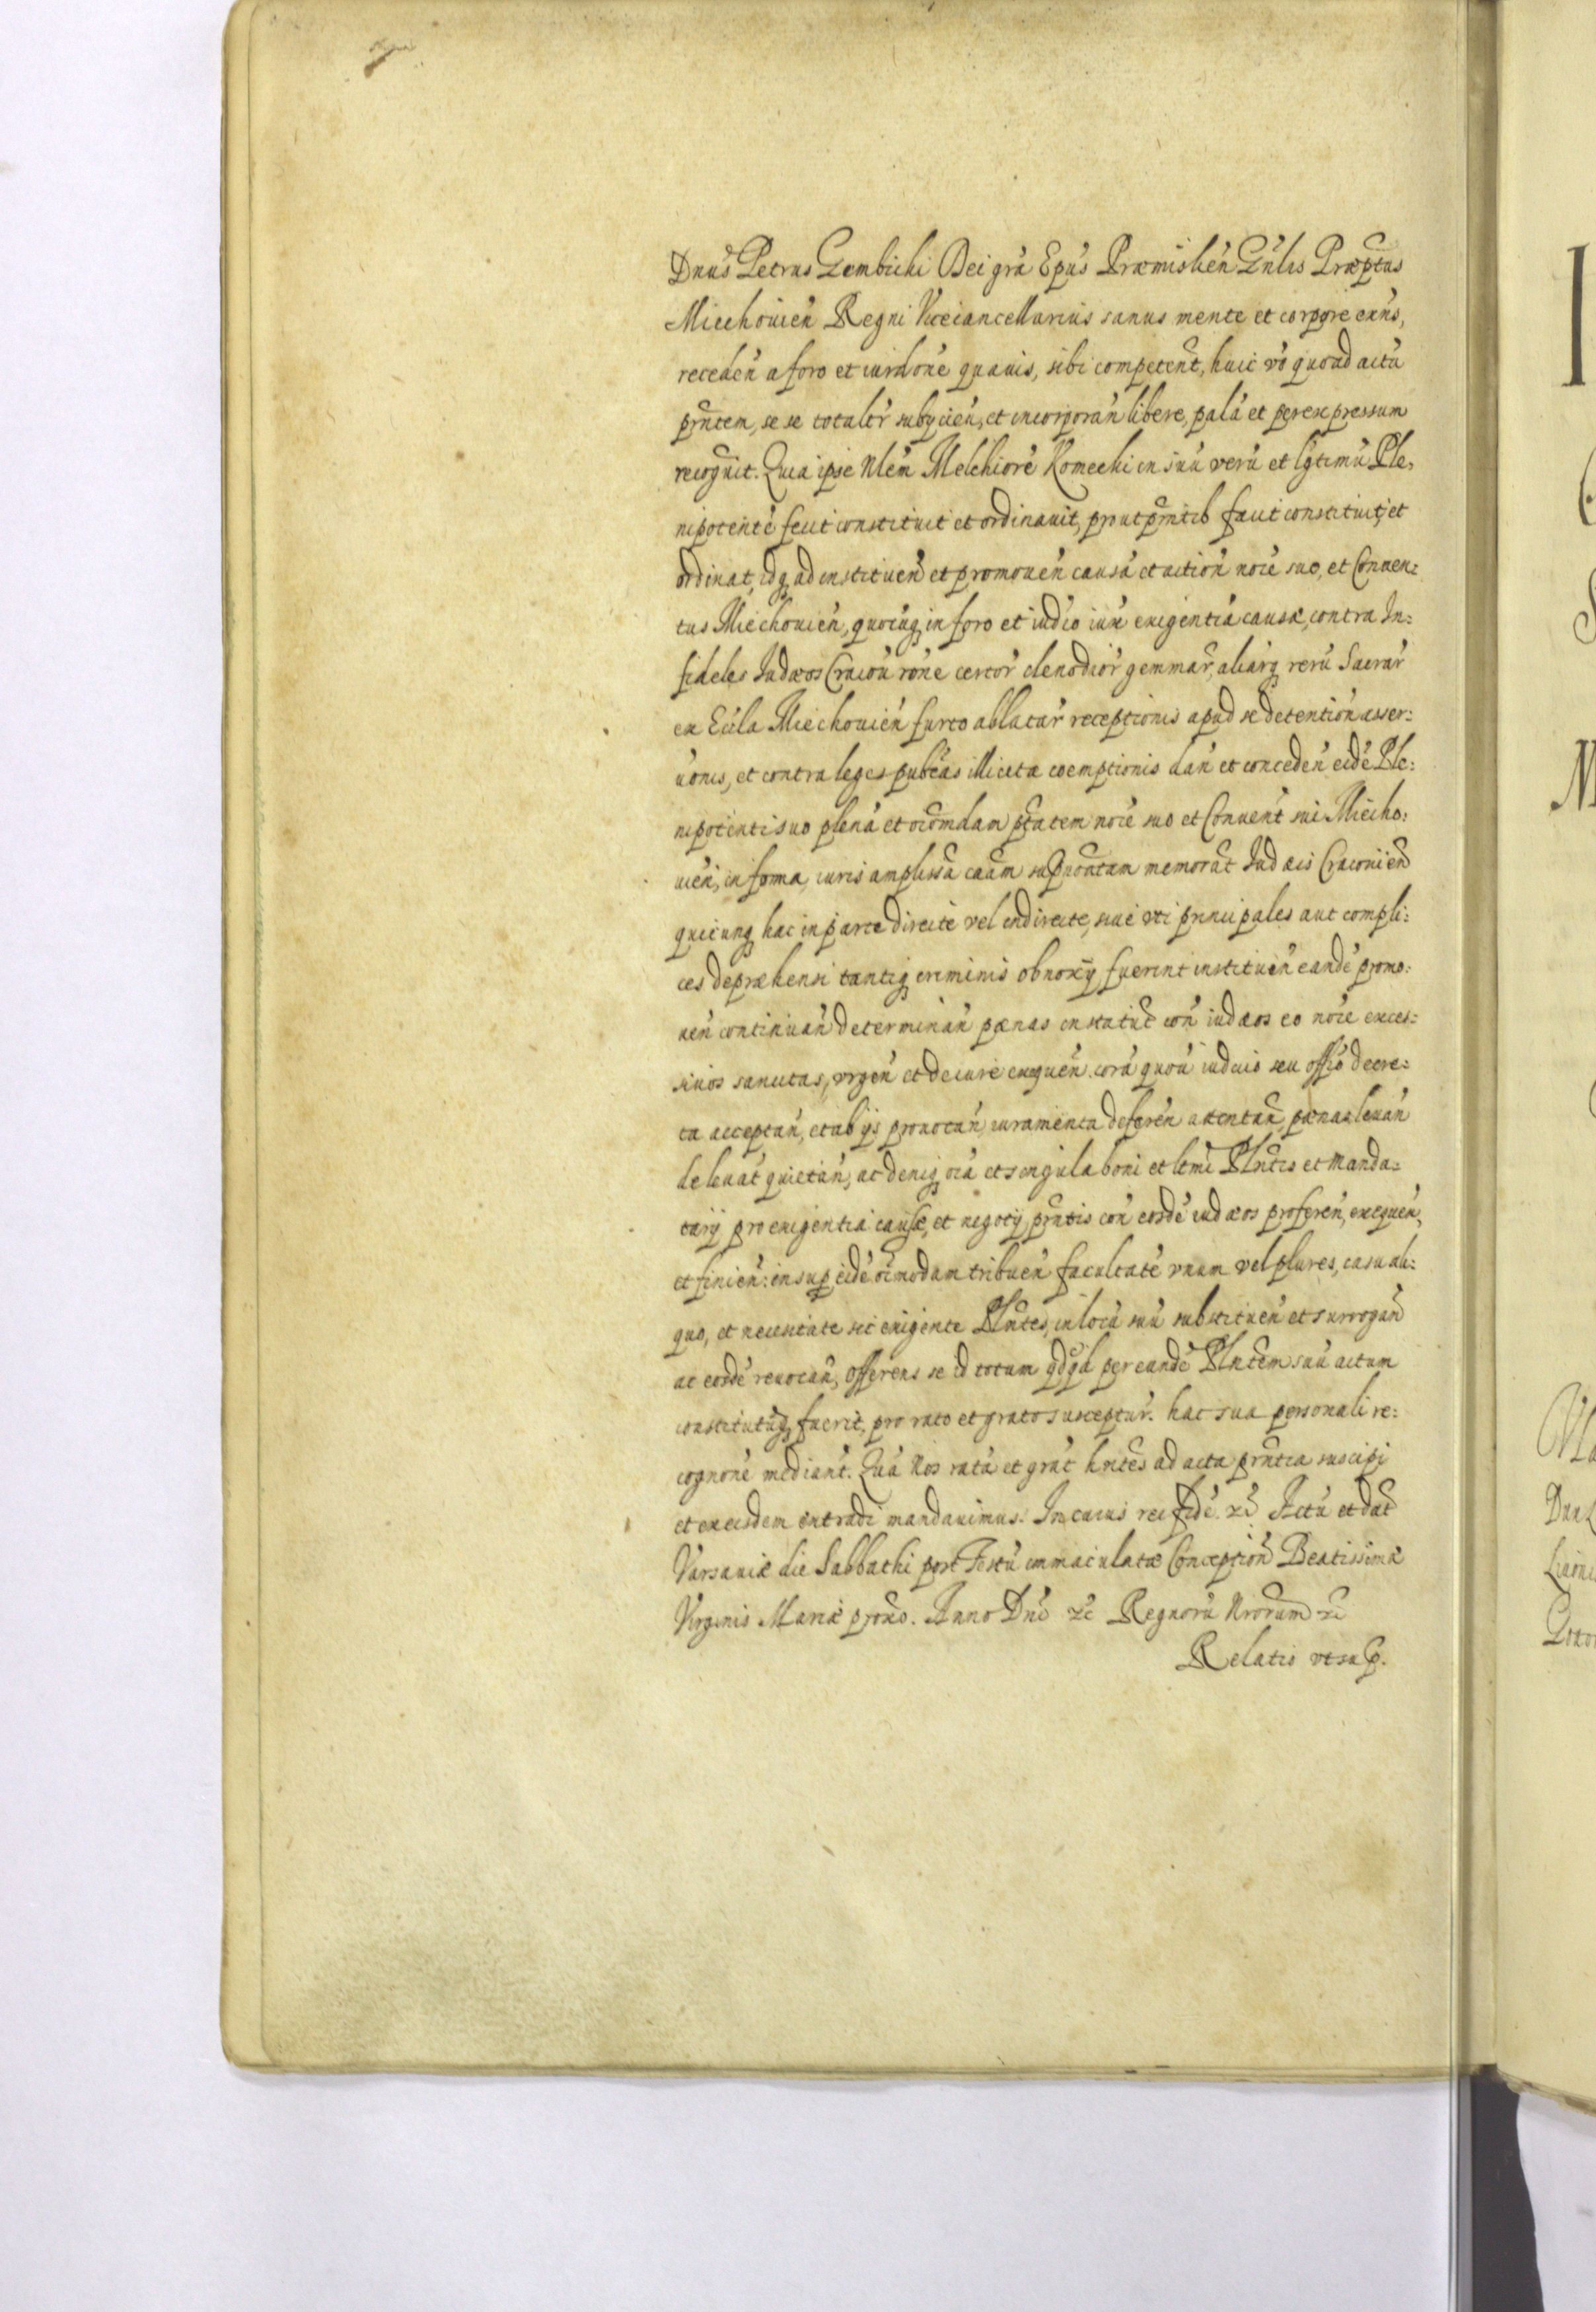 Dnus Petrus Gembicki Dei grã Epus Præmislień Gńlis Præptus
Miechouień Regni Vicecancellarius sanus mente et corpore exñs,
recedeń a foro et iurdoné quauis, sibi competent, huic vo quoad actũ
pñtem, se se totaltr subÿcień, et incorporań libere, palã et per expressum
recognit. Quia ipse Nlem Melchioré Komecki in suũ verũ et lgtimũ Ple,
nipotenté fecit constituit et ordinauit, prout pñtib facit constituit, et
ordinat, idq ad institueñ et promoueń causã et actioń noie suo, et Conuen:
tus Miechouień, quocũq in foro et iudio iux exigentiã causæ, contra In:
fideles Iudæos Cracou roñe certor clenodior gemmar, aliarq rerũ Sacrar
ex Eccla Miechouień furto ablatar receptionis apud se detentioń asser:
uonis, et contra leges pubcas illicitæ coemptionis dań et concedeń eidé Ple:
nipotenti suo plenã et oiomdam ptatem noie suo et Conuent sui Miecho:
uień, in forma iuris amplissã caũm supnoñtam memorat Iudæis Cracouień
quicunq hac in parte directè vel indirecte, siue vti principales aut compli:
ces depræhensi tantiq criminis obnoxÿ fuerint instituéń eandé promo:
ueń continuań determinań pænas in statut coń iudæos eo noie exces:
siuos sancitas, vrgeń et de iure exequeń corã quou iudicio seu offio decre:
ta acceptań, et ab ijs prouocań, iuramenta defereń attentań, pænas leuań
deleuat quietań, ac deniq oia et singula boni et ltmi Plntis et Manda:
tarÿ pro exigentia causæ, et negotÿ pñtis coń eosdé iudæos profereń, exequeń,
et finień: insup eidé oimodam tribueń facultaté vnum vel plures, casu ali:
quo, et necessitate sic exigente Plntes, in locũ suũ substitueń et surrogań
ac eosdé reuocań, offerens se id totum qdqd per eundé Plntem suũ actum
constitutũq fuerit, pro rato et grato susceptur. hac sua personali re:
cognoné mediant. Quã Nos ratã et grat hntes ad acta pñtia suscipi
et ex eisdem extradi mandauimus. In cuius rei fidé. &c Actũ et dat
Varsauiæ die Sabbathi post Festũ immaculatæ Conceptioń Beatissimæ
Virginis Mariæ proxo. Anno Dni &c Regnorũ Nrorum &c
Relatio vt sup.